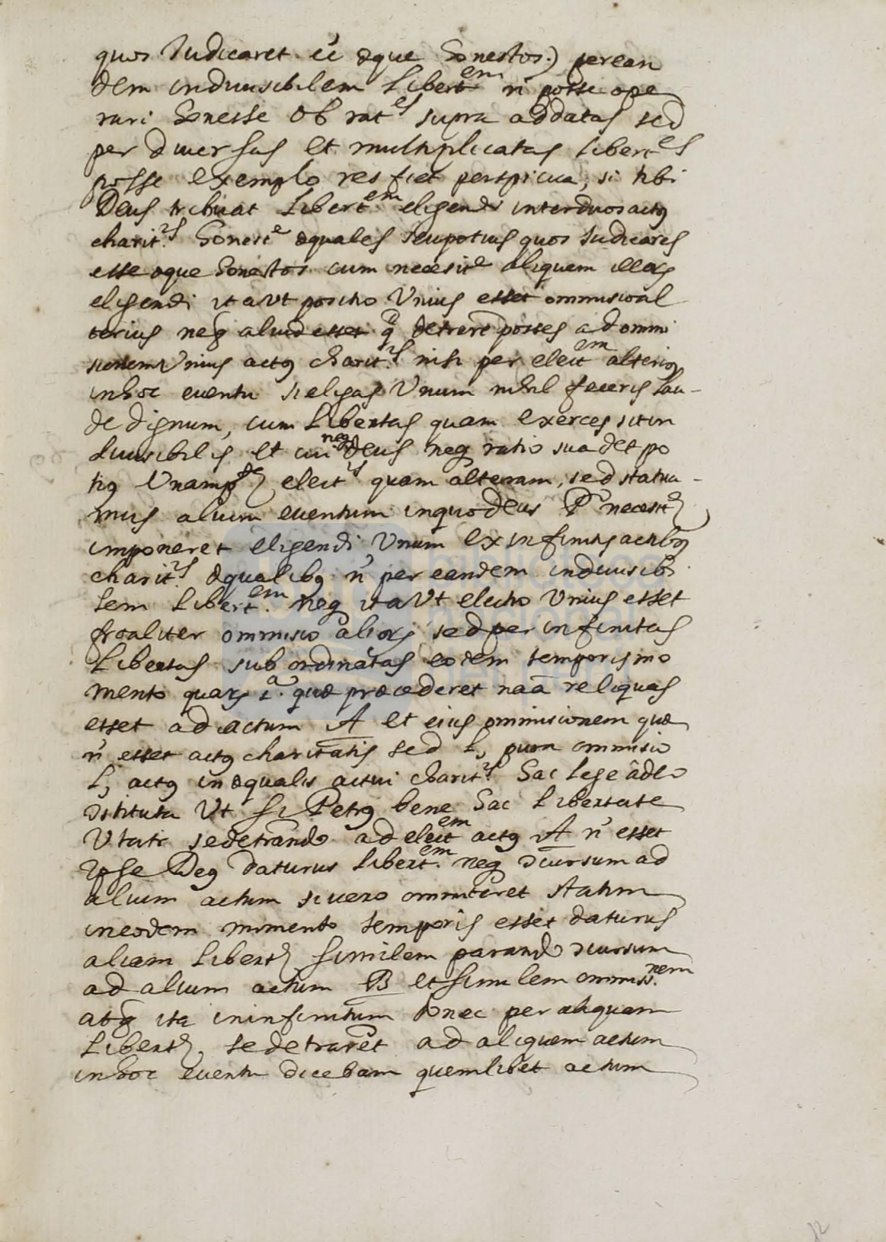 quos Iudicaret eē æque honestos) per ean
dem indiuisibilem Libert.em ñ posse ope
rari honeste ob rat.es supra addatas sed
per diuersas et multiplicatas libert.es
posse exemplo res fiet perspicua, si tibi
Deus tribuat Libert.em eligendi inter duos actus
charit.is honest.e æquales seu potius quos Iudicares
esse æque honestos cum necesit.e aliquem illorum
eligendi ita vt positio Vnius esset ommisio al
terius neque aliud esset detrert posses ad ommi
sionem Vnius actus charit.is nisi per elect.em alterius
in hoc euentu si eligas Vnum nihil feceris lau-
de dignum, cum Libertas quam exerces sit in
diuisibilis et neque Deus neque ratio suadet po
tius Vnam elect.is quam alteram, sed statua-
mus alium euentum in quo Deus P. necesit
imponeret eligendi Vnum ex infinitis actibus
charit.is æqualibus ñ per eandem indiuisibi
lem Libert.em neque ita vt electio Vnius esset
ommisio aliorum sed per infinitas
Libertas subordinatas eodem temporis mo
mento quarum 1.a quæ præcederet naā reliquas
esset ad actum A et eius ommisionem quæ
ñ esset actus charitatis sed L, pura ommisio
L, actus inæqualis actui charit.is hac lege
vt si Petrus bene hac Libertate
Vtatr se detrando ad elect.em actus A ñ esset
ipse Deus daturus Libert.em neque ad
alium actum si uero ommiteret statim
in eodem momento temporis esset daturus
aliam Libert similem parando
ad alium actum B et similem ommis.nem
atque ita in infinitum donec per aliquam
Libert, se detraret ad aliquem actum
in hoc euentu dicebam quemlibet actum